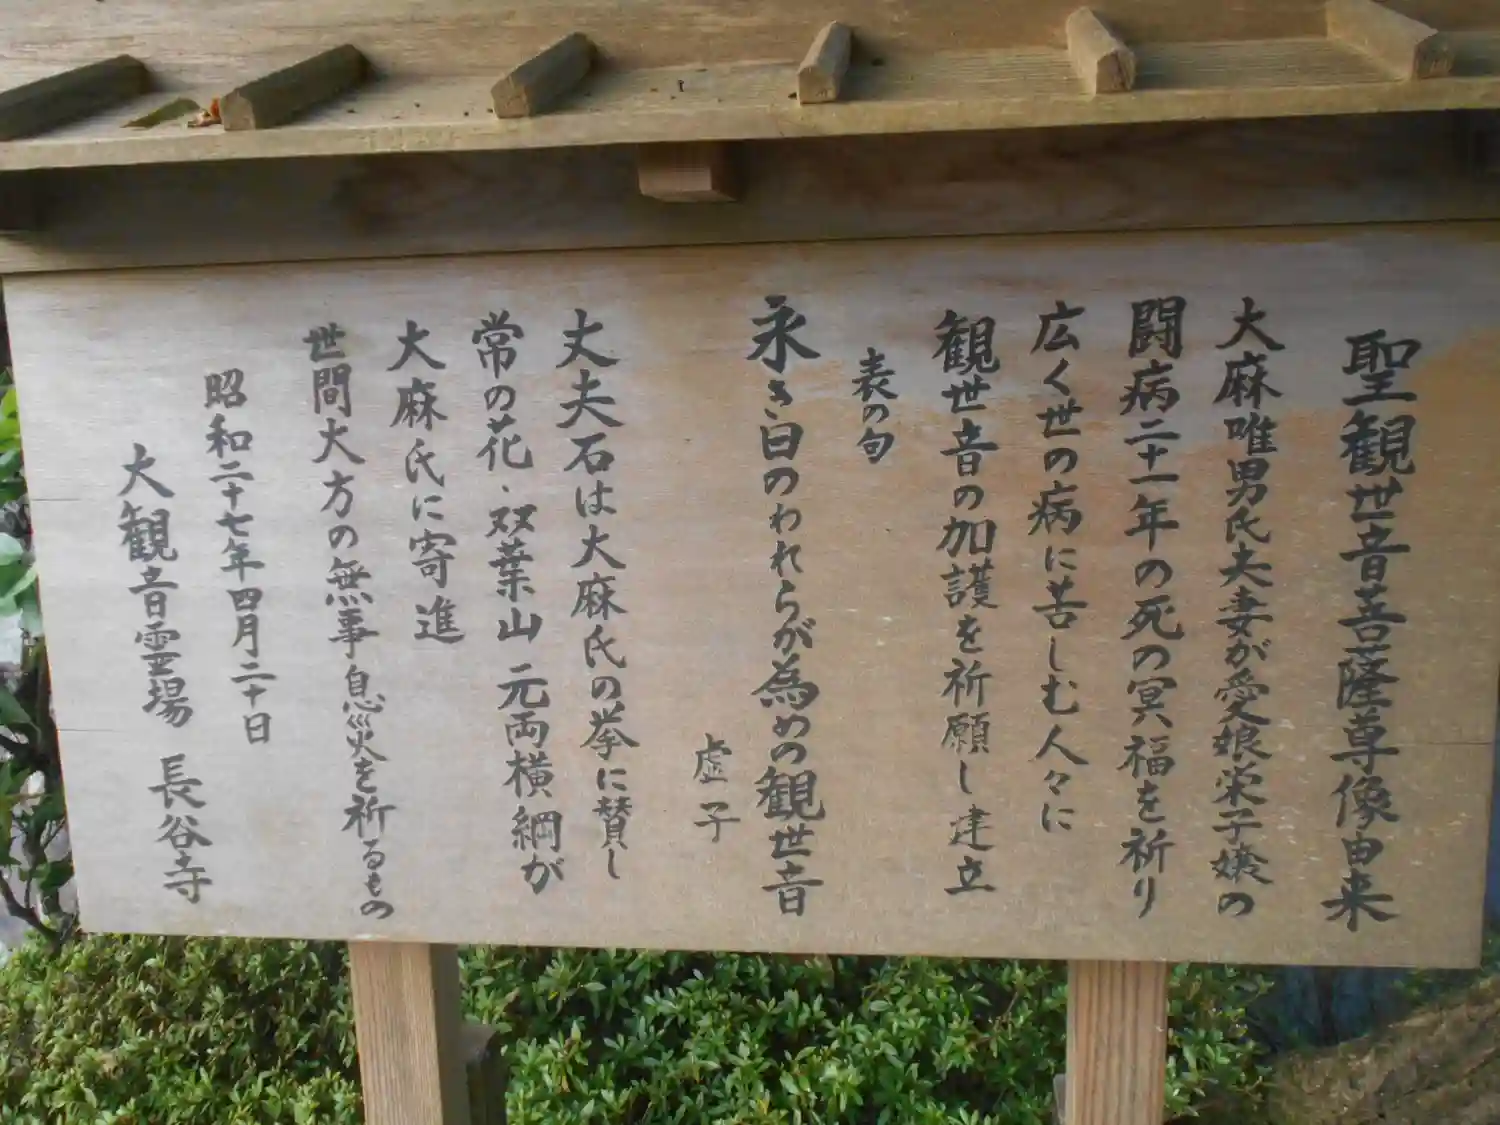 聖観世音菩薩尊像由来
大麻唯男氏夫妻が愛娘栄子嬢の
闘病二十一年の死の冥福を祈り
広く世の病に苦しむ人々に
観世音の加護を祈願し建立
表の句
永き日のわれらが為めの観世音
虚子
丈夫石は大麻氏の挙に賛し
常の花・双葉山元両横綱が
大麻氏に寄進
世間大方の無事息災を祈るもの
昭和二十七年四月二十日
大観音霊場 長谷寺